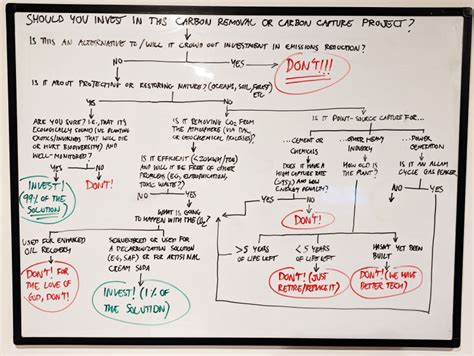 SHOULD YOU INVEST IN THIS CARBON REMOVAL OR CARBON CAPTURE PROJECT?
IS THIS AN ALTERNATIVE TO/WILL IT CROWD OUT INVESTMENT IN EMISSIONS REDUCTION?
NO
YES
DON'T!!!
IS IT ABOUT PROTECTING OR RESTORING NATURE? (OCEANS, SOIL, FOREST
ETC
YES
NO
ARE YOU SURE? I.E., THAT IT'S
ECOLOGICALLY SOUND (VS PLANTING
EXOTICS/MONOCROPS THAT WILL DIE
OR HURT BIODIVERSITY) AND
WELL-MONITORED?
YES
NO
INVEST!
99% OF THE
SOLUTION
DON'T!
IS IT REMOVING CO2 FROM
THE ATMOSPHERE (VIA DAC
OR GEOCHEMICAL PROCESSES)?
IS IT EFFICIENT
AND WILL IT BE FREE OF OTHER
PROBLEMS (EG,
TOXIC WASTE?)
NO
YES
DON'T!
WHAT IS GOING
TO HAPPEN WITH THE CO2?
USED FOR ENHANCED
OIL RECOVERY
DON'T! FOR
THE LOVE OF
GOD, DON'T!
SEQUESTERED OR USED FOR
A DECARBONIZATION SOLUTION
(EG, SAF) OR FOR ARTISANAL
CREAM SODA
INVEST! (1% OF
THE SOLUTION)
IS IT POINT-SOURCE CAPTURE FOR...
...CEMENT OR
CHEMICALS
DOES IT HAVE A
HIGH CAPTURE RATE
AND LOW
ENERGY PENALTY?
YES
NO
DON'T!
...OTHER HEAVY
INDUSTRY
HOW OLD IS
THE PLANT?
>5 YEARS
OF LIFE LEFT
<5 YEARS
OF LIFE LEFT
HASN'T YET BEEN
BUILT
DON'T! (JUST
RETIRE/REPLACE IT)
DON'T! (WE HAVE
BETTER TECH)
...POWER
GENERATION
IS IT AN ALLAM
CYCLE GAS PEAKER?
NO
YES